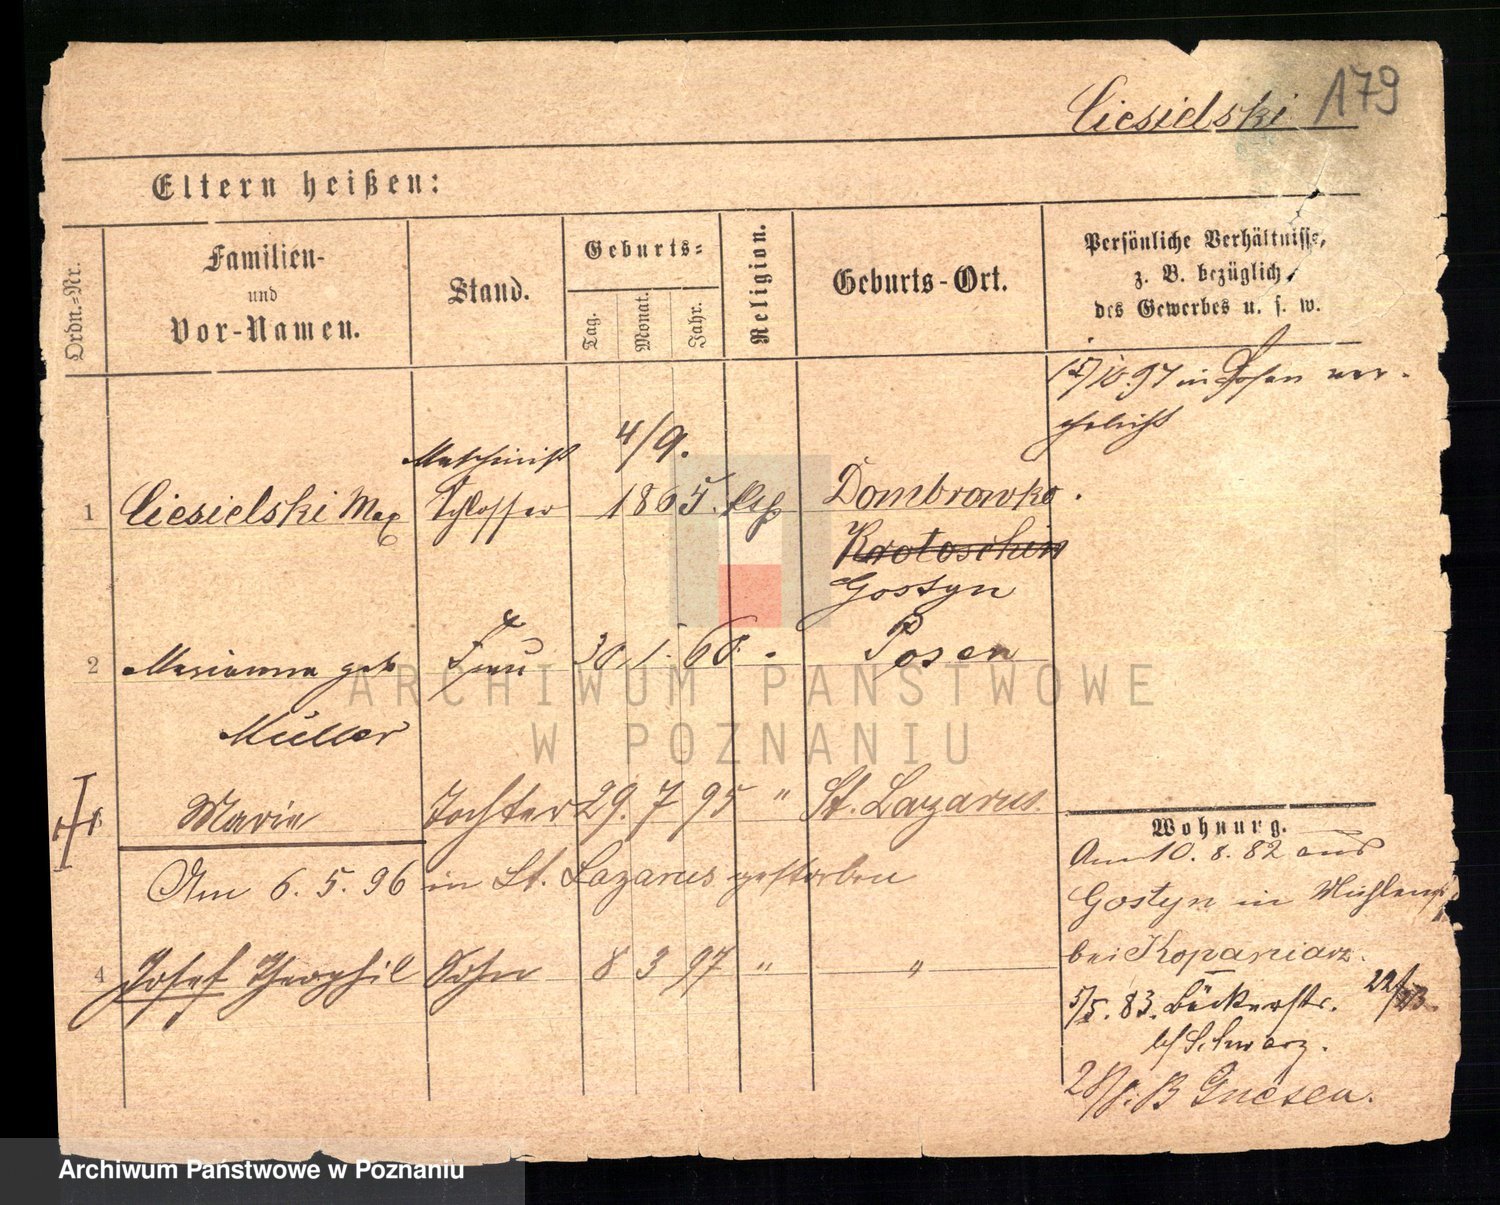 Ciesielski 179
Eltern heißen:
Ordn.-Nr.
Familien-
und
Vor-Namen.
Stand.
Geburts-
Tag.
Monat.
Jahr.
Religion.
Geburts-Ort.
Persönliche Verhältnisse,
z. B. bezüglich
des Gewerbes u. s. w.
15/10.97 in Posen ver-
ehelicht
Maschinist 4/9.
1 Ciesielski Max Schlosser 1865. kth Dombrowko.
Krotoschin
Gostyn
2 Marianna geb Frau 30 1. 60. Posen
Müller
Marie Tochter 29. 7 95 " St. Lazarus.
Am 6. 5. 96 in St. Lazarus gestorben
4 Josef Theophil Sohn 8 3 97 " "
Wohnung.
Am 10. 8. 82 aus
Gostyn in
bei Kopaniarz.
5/5. 83. Bäckerstr.
b/ Schwarz.
Gnesen.
ARCHIWUM PAŃSTWOWE
W POZNANIU
Archiwum Państwowe w Poznaniu